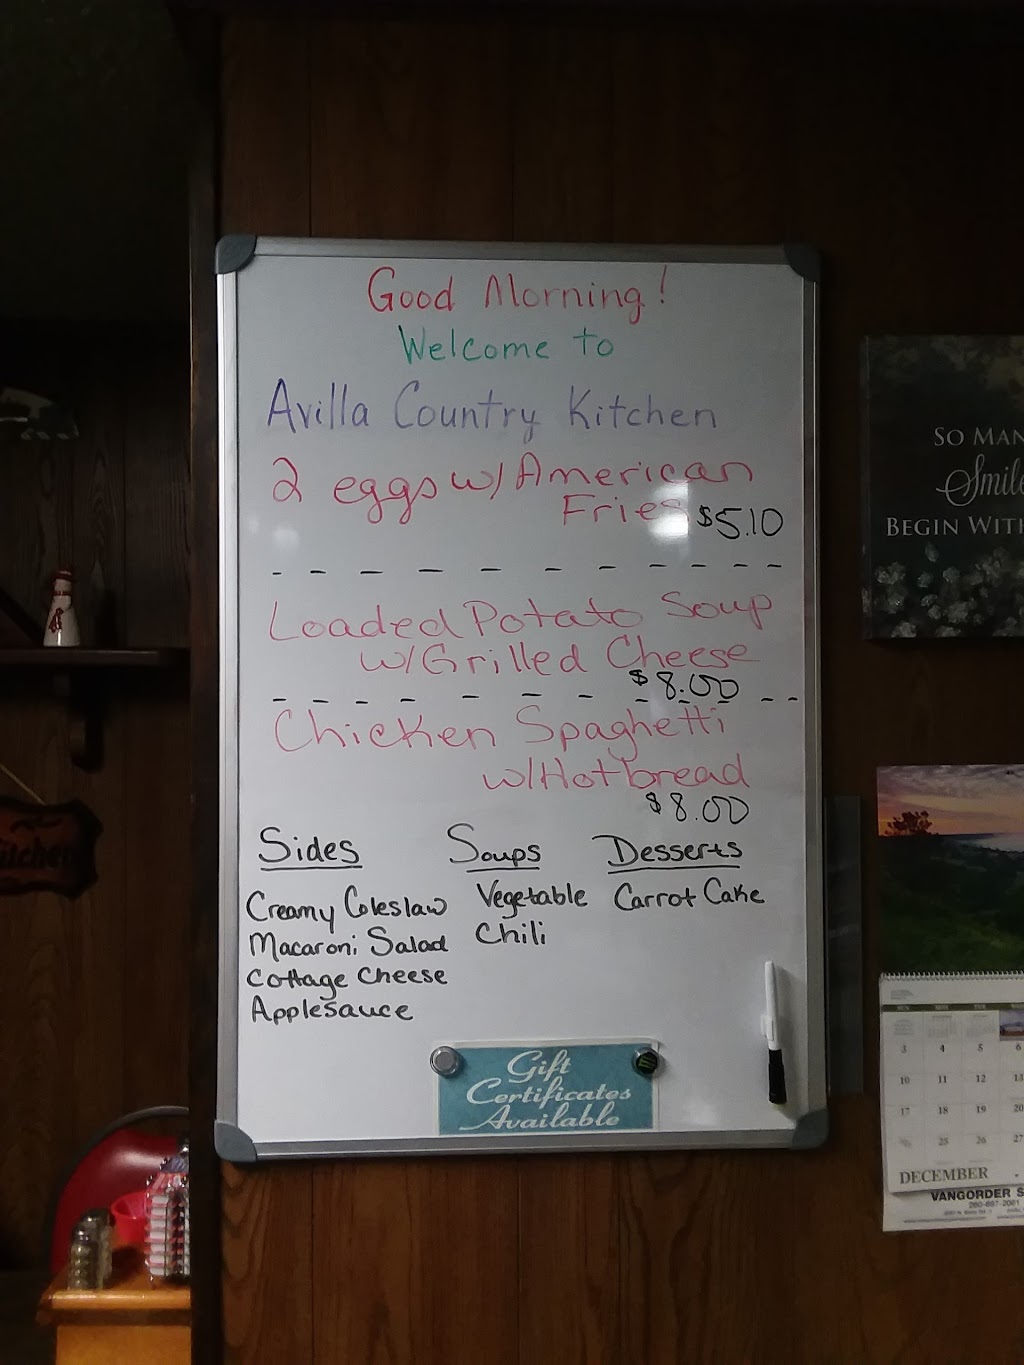 Good Morning!
Welcome to
Avilla Country Kitchen
2 eggs w/ American
Fries $5.10
Loaded Potato Soup
w/Grilled Cheese
$8.00
Chicken Spaghetti
w/Hot bread
$8.00
Sides
Creamy Coleslaw
Macaroni Salad
Cottage Cheese
Applesauce
Soups
Vegetable
Chili
Desserts
Carrot Cake
Gift
Certificates
Available
SO MAN
Smile
BEGIN WIT
3 4 5 6
10 11 12 13
17 18 19 20
25 26 27
DECEMBER
VANGORDER S
260-897-2001
itchen